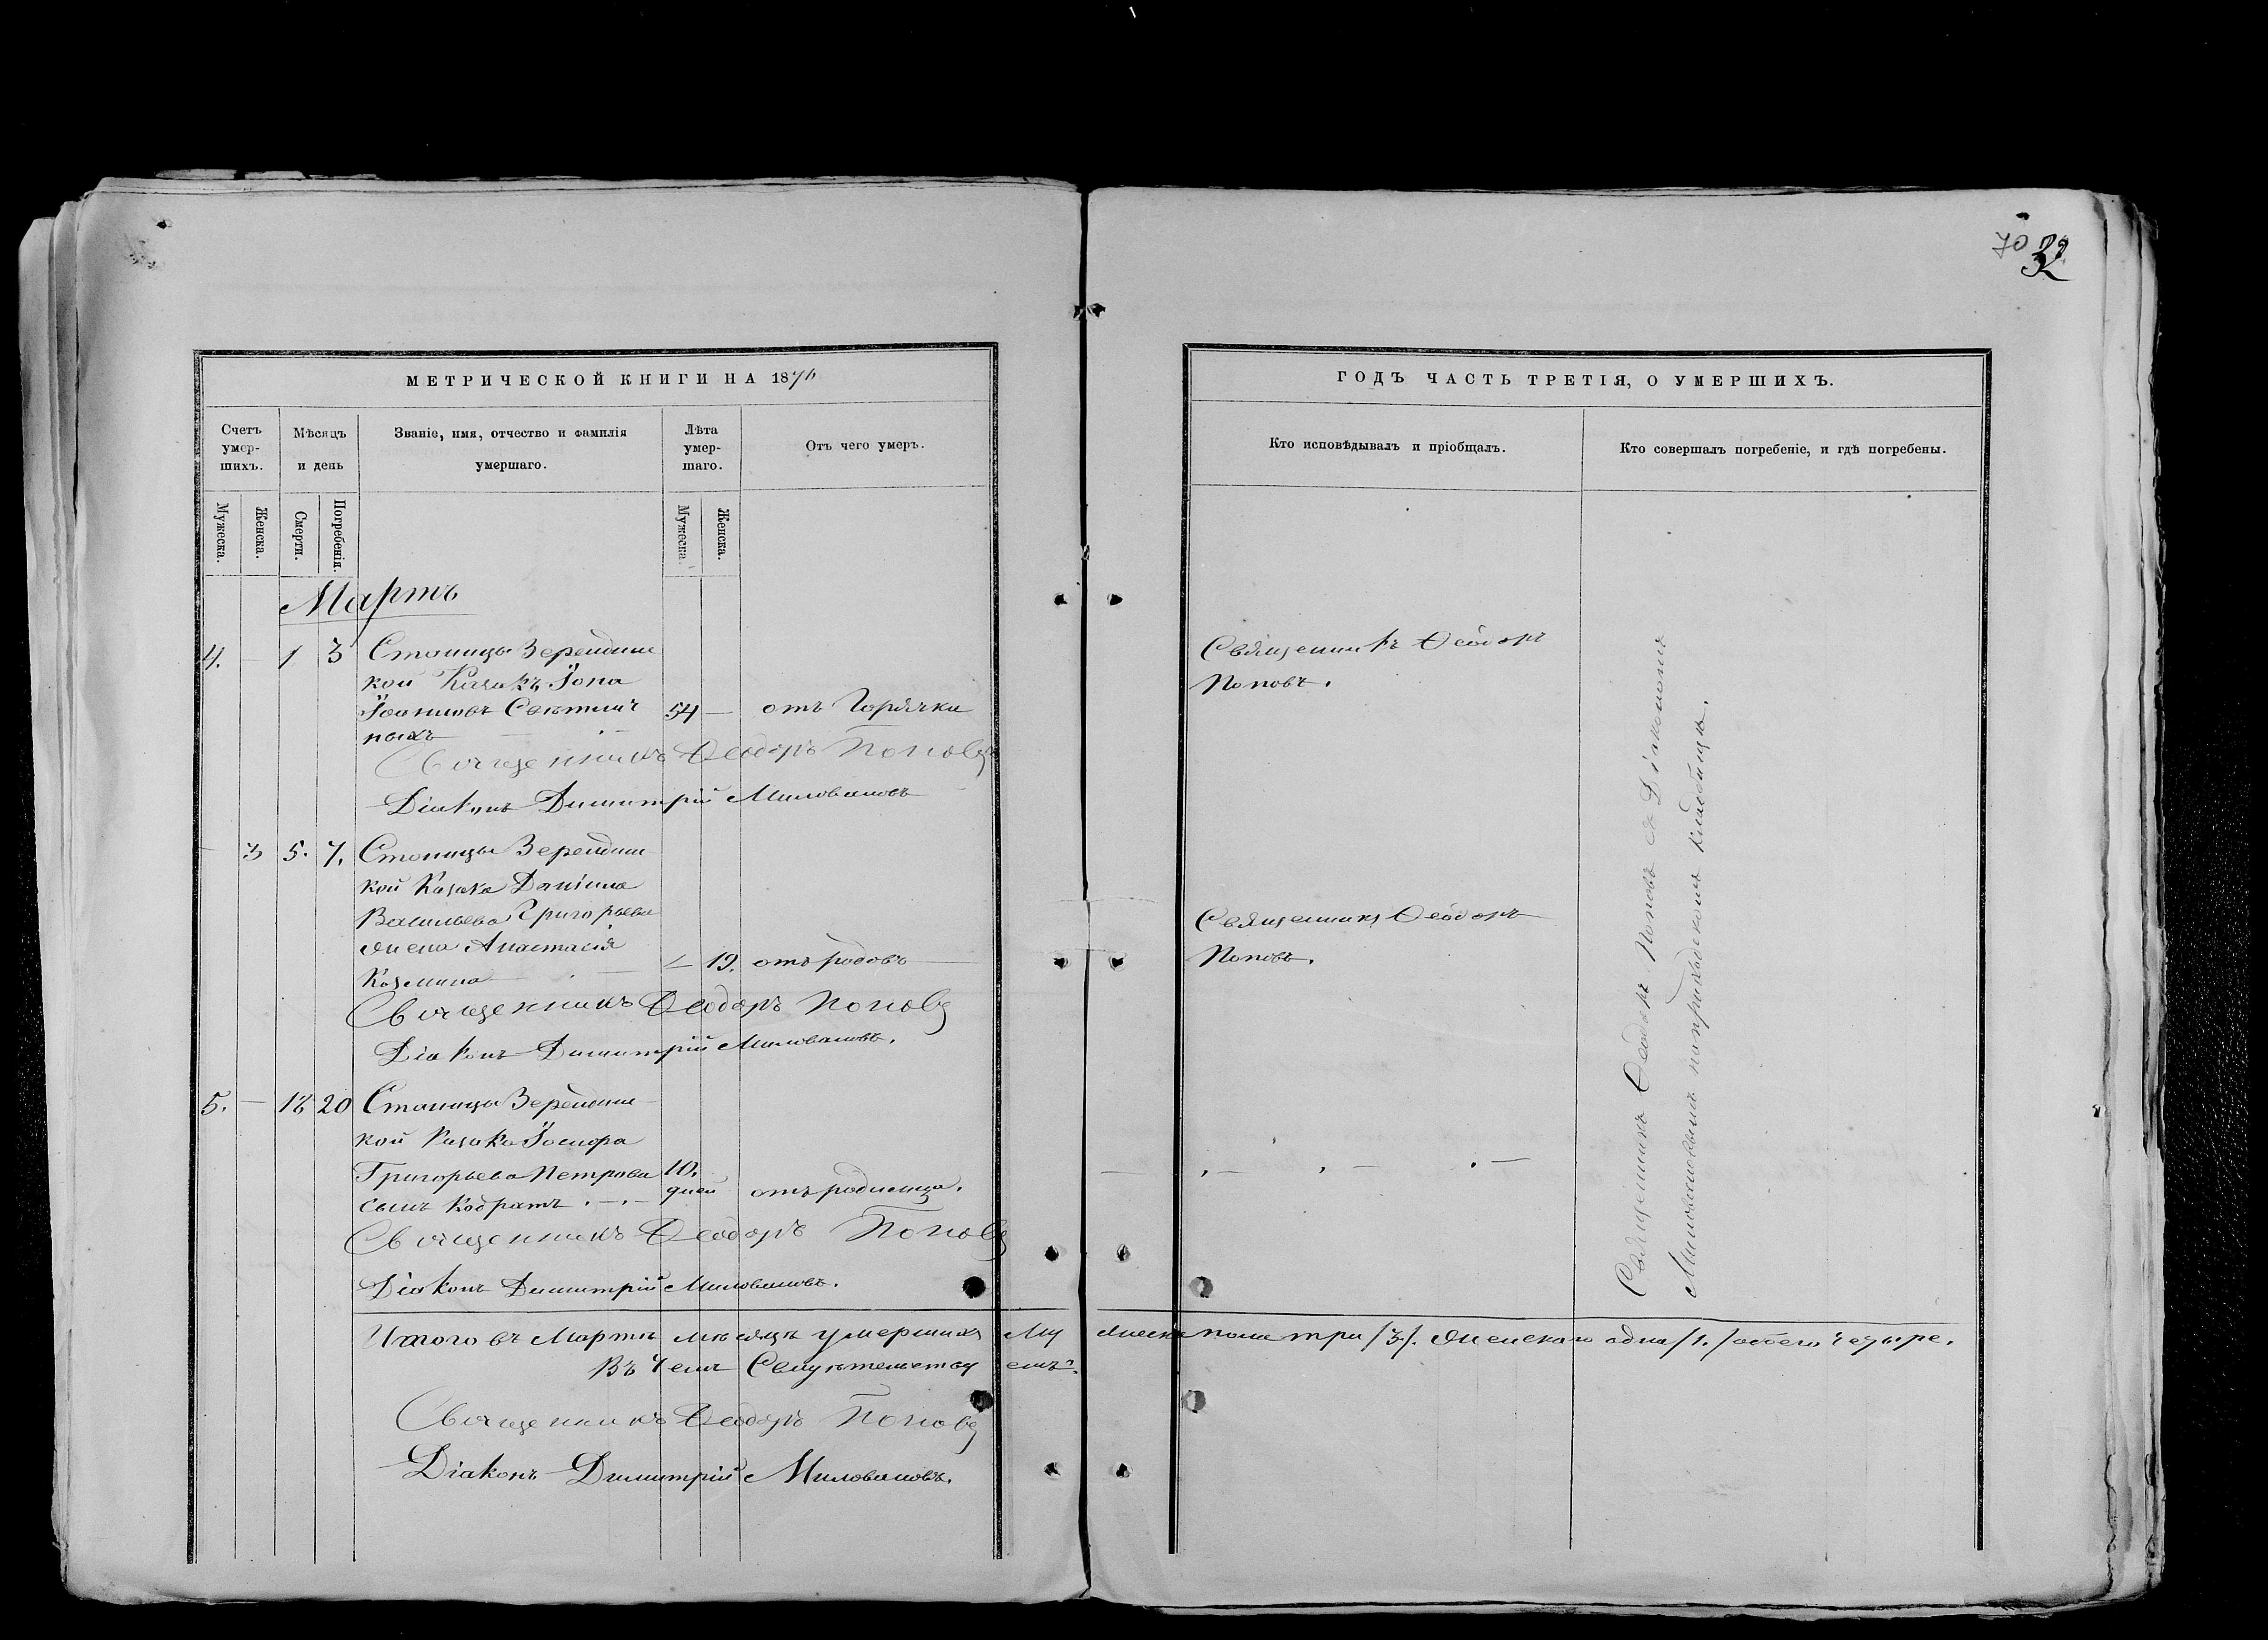 70 32
МЕТРИЧЕСКОЙ КНИГИ НА 1876
ГОДЪ ЧАСТЬ ТРЕТІЯ, О УМЕРШИХЪ.
Счетъ умер-шихъ.
Мѣсяцъ и день
Званіе, имя, отчество и фамилія умершаго.
Лѣта умер-шаго.
Отъ чего умеръ.
Кто исповѣдывалъ и пріобщалъ.
Кто совершалъ погребеніе, и гдѣ погребены.
Мужеска.
Женска.
Смерти.
Погребенія.
Мужеска
Женска.
Мартъ
4. — 1 3 Станицы Зерендин
кой Казакъ Іона
Іоанновъ Свѣтлич 54 — отъ Горячки
ныхъ
Священникъ Ѳеодоръ Поповъ
Діаконъ Димитрій Миловановъ
Священникъ Ѳеодоръ
Поповъ.
— 3 5. 7. Станицы Зерендин
кой Казака Даніила
Васильева Григорьева
жена Анастасія
Козмина — 19. отъ родовъ
Священникъ Ѳеодоръ Поповъ
Діаконъ Димитрій Миловановъ.
Священникъ Ѳеодоръ
Поповъ.
5. — 18 20 Станицы Зерендин
кой Казака
Григорьева Петрова 10.
сынъ Кодратъ . — . — дней отъ родимца.
Священникъ Ѳеодоръ Поповъ
Діаконъ Димитрій Миловановъ.
Священникъ Ѳеодоръ Поповъ съ Діакономъ
Миловановымъ на приходскомъ кладбищѣ.
Итого въ Мартѣ мѣсяцѣ умершихъ Му жеска пола три /3/. Женскаго одна /1./ всего четыре.
Въ чемъ Свидѣтельству емъ:
Священникъ Ѳеодоръ Поповъ
Діаконъ Димитрій Миловановъ.